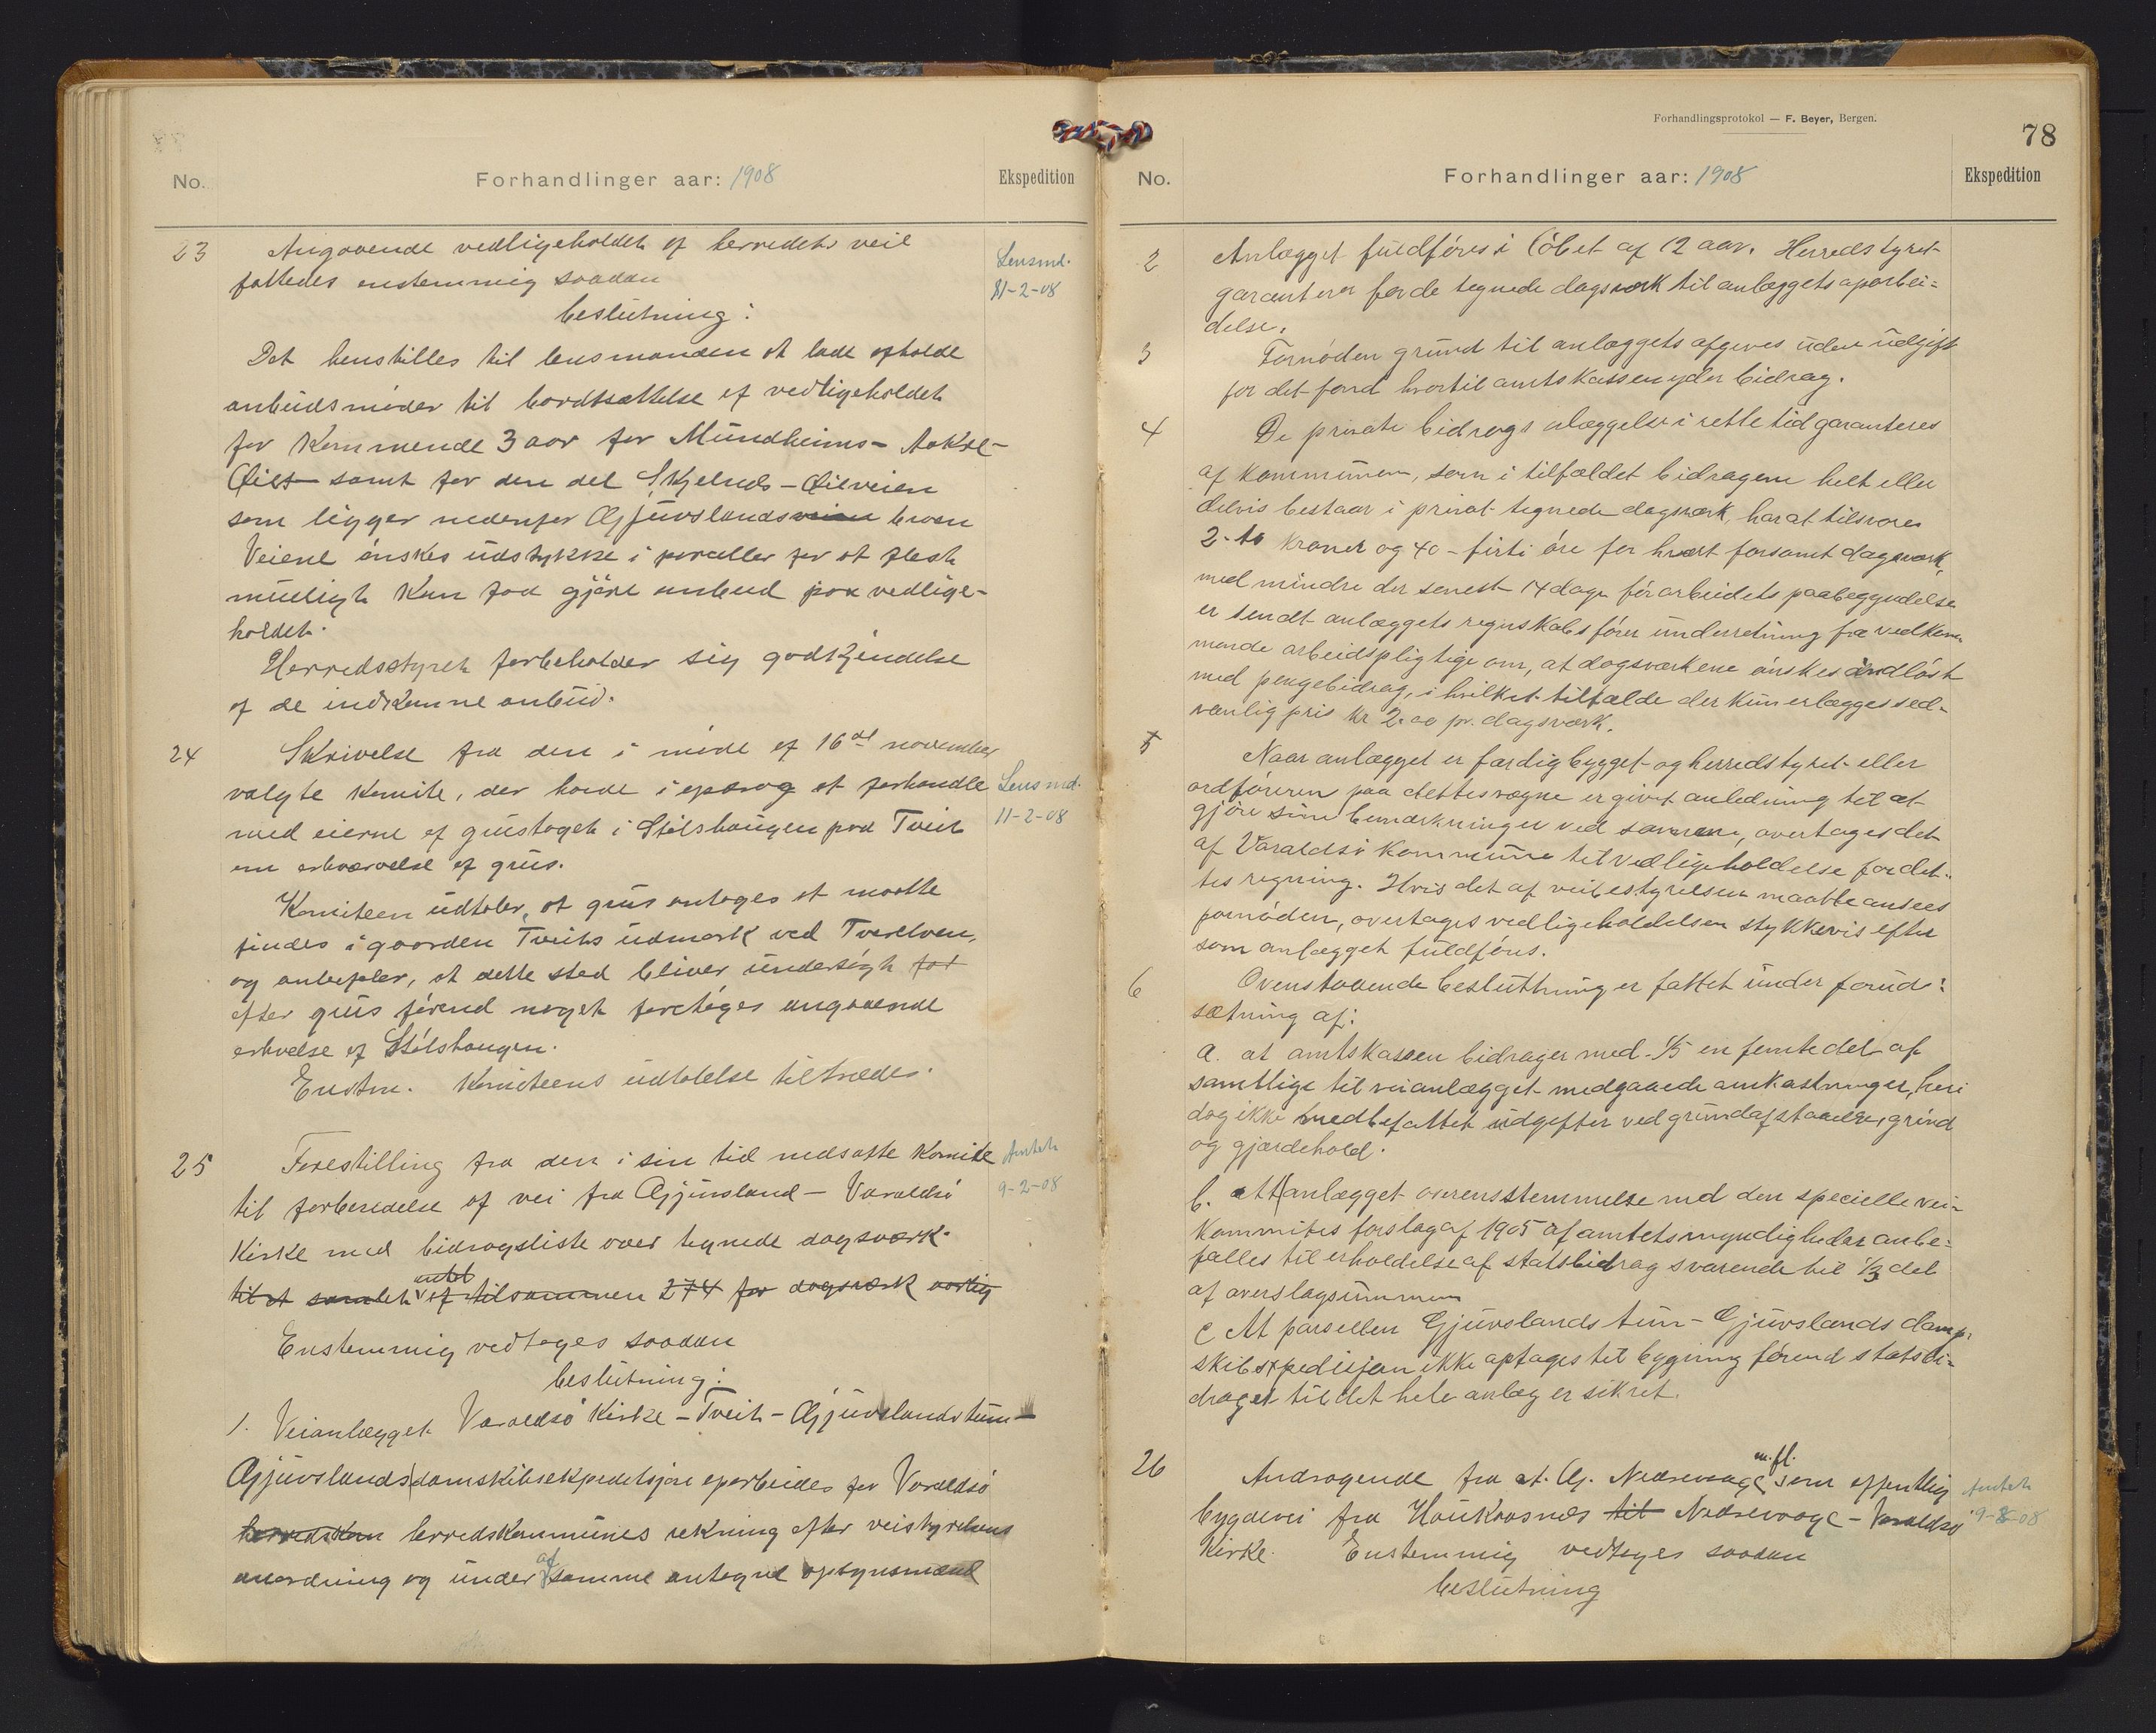 No.
Forhandlinger aar: 1908
Ekspedition
23
Angaaende vedligeholdet af herredets veie
Lensmd.
fattedes enstemmig saadan
11-2-08
beslutning:
Det henstilles til lensmanden at lade afholde
anbudsmöder til bortsættelse af vedligeholdet
for kommende 3 aar for Mundheims-
samt for den del
som ligger nedenfor Gjuvslands broen
Veiene önskes udstykke i parceller for at flest
muligt kan faa gjöre anbud paa vedlige-
holdet.
Herredsstyret forbeholder sig godkjendelse
af de indkomne anbud.
24
Skrivelse fra den i möde af 16de november
valgte komite, der havde i opdrag at forhandle
Lensmd.
med eierne af grustaget i Stölshaugen paa Tveit
11-2-08
om erhvervelse af grus.
Komiteen udtaler, at grus antages at maatte
findes i gaarden Tveits udmark ved Tverelven,
og anbefaler, at dette sted bliver undersögt for
efter grus förend noget foretages angaaende
Stölshaugen.
Enstm. Komiteens udtalelse tiltrædes.
25
Forestilling fra den i sin tid nedsatte komite
Amtet
til forberedelse af vei fra Gjuvsland - Varaldsö
9-2-08
Kirke med bidragsliste over tegnede dagsværk.
antal
til et samlet af tilsammen 274 for dagsværk aarlig
Enstemmig vedtoges saadan
beslutning:
1. Veianlægget Varaldsö Kirke - Tveit - Gjuvslandstun -
Gjuvslands damskibsekspedisjon oparbeides for Varaldsö
herredskom herredskommunes rekning efter veistyrelsens
af
anordning og under samme antagne opsynsmænd
Forhandlingsprotokol — F. Beyer, Bergen.
78
No.
Forhandlinger aar: 1908
Ekspedition
2
Anlægget fuldföres i löbet af 12 aar. Herredstyret
garanterer for de tegnede dagsverk til anlæggets aparbei=
delse.
3
Fornöden grund til anlæggets afgives uden udgift
for det fond hvortil amtskassen yder bidrag.
4
De private bidrags i rette tid garanteres
af kommunen, som i tilfældet bidragene helt eller
delvis bestaar i privat tegnede dagsværk, har at tilsvare
2-to kroner og 40-firti öre for hvert forsömt dagsværk,
med mindre der senest 14 dage för arbeidets paabegyndelse
er sendt anlæggets regnskabsförer underretning fra vedkom-
mende arbeidspligtige om, at dagsværkene önskes indlöst
med pengebidrag, i hvilket tilfælde der kun erlægges sed-
vanlig pris kr 2.00 pr. dagsværk.
5
Naar anlægget er færdigbygget og herredstyret eller
ordföreren paa dettes vegne er givet anledning til at
gjöre sine bemærkninger ved samme, overtages det
af Varaldsö kommune til vedligeholdelse for det-
tes regning. Hvis det af veibestyrelsen maatte ansees
fornöden, overtages vedligeholdelsen stykkevis efter
som anlægget fuldföres.
6
Ovenstaaende beslutning er fattet under forud=
sætning af:
a. at amtskassen bidrager med 1/5 en femtedel af
samtlige til veianlægget medgaaede omkostninger, heri
dog ikke medbefattet udgifter ved grundafstaaelse, grind
og gjærdehold.
b. at anlægget overensstemmelse med den specielle vei-
kommites forslag af 1905 af amtets myndigheder anbe=
falles til erholdelse af statsbidrag svarende til 1/3 del
af overslagsummen
c At parsellen Gjuvslands tun - Gjuvslands damp-
skibexpedisjon ikke optages til bygning förend statsbi-
draget til det hele anlæg er sikret.
26
m.fl.
Andragende fra Nedrevaage som offentlig
Amtet
bygdevei fra Haukaasnes til Nedrevaage - Varaldsö
9-8-08
Kirke. Enstemmig vedtoges saadan
beslutning